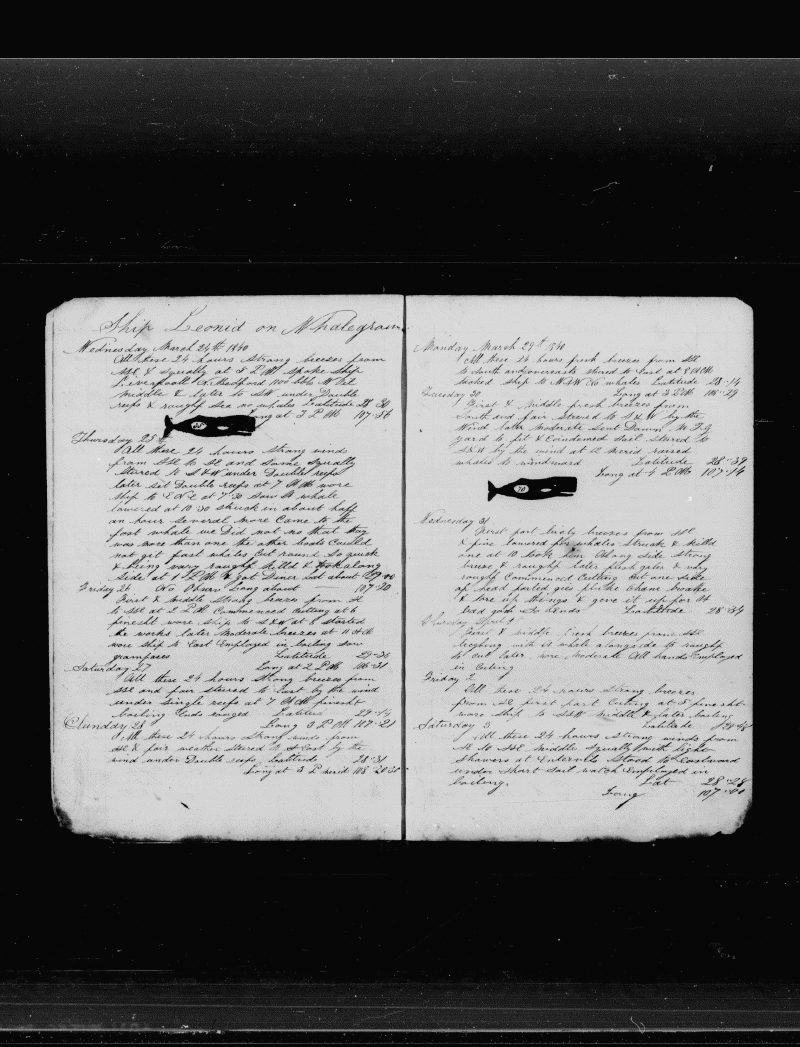 Ship Leonid on Whalegroun
Wednesday March 24th 1840
All these 24 hours Strong breezes from
SSE & Squally at 3 P M Spoke Ship
Liverpool N Bedford 1100 bbls
middle & later to SW under Double
reefs & raught Sea no whales Latitude 28-30
Long at 3 P M 107-54
Thursday 25
All these 24 hours Strong winds
from SSE to SE and Some Squally
Steered to S&W under Double reefs
later set Double reefs at 7 A M wore
Ship to E N E at 7-30 Saw S whale
lowered at 10-30 Struck in about half
an hour Several more Came to the
fast whale we Did not no that thay
was more than one the other boats Could
not git fast whales Cut round So quick
& being very raught killed & took along
Side at 1 P M & got Diner Lat about 29-00
Friday 26 No Observ Long about 107-20
First & middle Strong breezes from SE
to SSE at 2 P M Commenced Cutting at 6
finesht wore Ship to S&W at 8 Started
the works later Moderate breezes at 11 A M
wore Ship to East Employed in boiling Saw
grampases Latitude 29-25
Saturday 27 Long at 2 P M 106-31
All these 24 hours Strong breezes from
SSE and fair Steered to East by the wind
under Single reefs at 7 A M finesht
boiling Ends Latitude 29-14
Sunday 28 Long 3 P M 107-21
All these 24 hours Strong winds from
SE & fair weather Steered to East by the
wind under Double reefs Latitude 28-31
Long at 3 P merid 108-20-30
Monday March 29th 1840
All these 24 hours fresh breezes from SSE
to South and overcaste Stered to East at 9 A M
tacked Ship to W S W No whales Latitude 28-14
Tuesday 30 Long at 3 P M 106-39
First & Middle fresh breezes from
South and fair Steered to S&W by the
Wind later Moderate Sent Down
yard to fit & Condemed Sail Stered to
S&W by the wind at 12 Merid raised
whales to windward Latitude 28-39
Long at 4 P M 107-14
70
Wednesday 31
First part lively breezes from SSE
& fine lowered for whales Struck & killed
one at 10 took him Along Side Strong
breeze & raught later fresh gales & very
raught Commenced Cutting Cut one Side
of head parted fluke Chane broake
& tore up things & gave it up for A
bad job So Ends Latitude 28-34
Thursday April 1
First & middle fresh breezes from SSE
with a whale alongside to raught
to Cut later more Moderate All hands Employed
in Cuting
Friday 2
All these 24 hours Strong breezes
from SE first part Cuting at 5 finesht
wore Ship to S&W Middle & later boiling
Saturday 3 Latitude
All these 24 hours Strong winds from
SE to SSE Middle Squally with light
Showers at Entervils Stood to Eastward
under Short Sail watch Employed in
boiling. Lat 28-28
Long 107-00